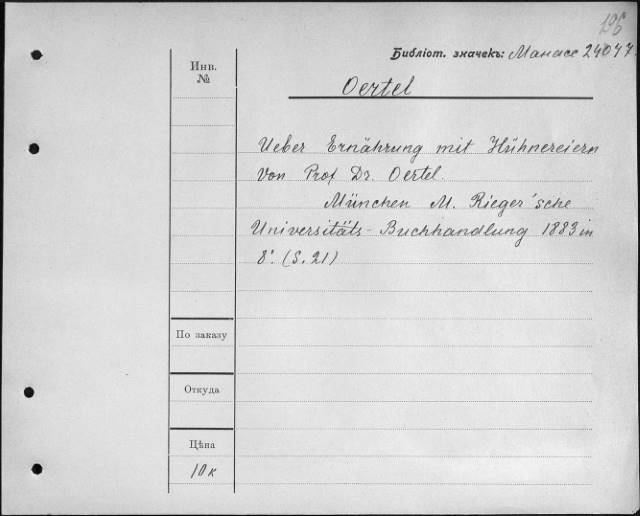 196
Библіот. значекъ: Манасс 24047.
Инв.
№
Oertel
Ueber Ernährung mit Hühnereiern
von Prof Dr. Oertel.
München M. Rieger'sche
Universitäts-Buchhandlung 1883 in
8°. (S. 21)
По заказу
Откуда
Цѣна
10 к